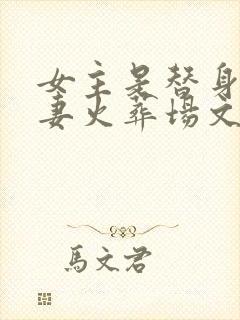 女主是替身
妻火葬場文
馬文君